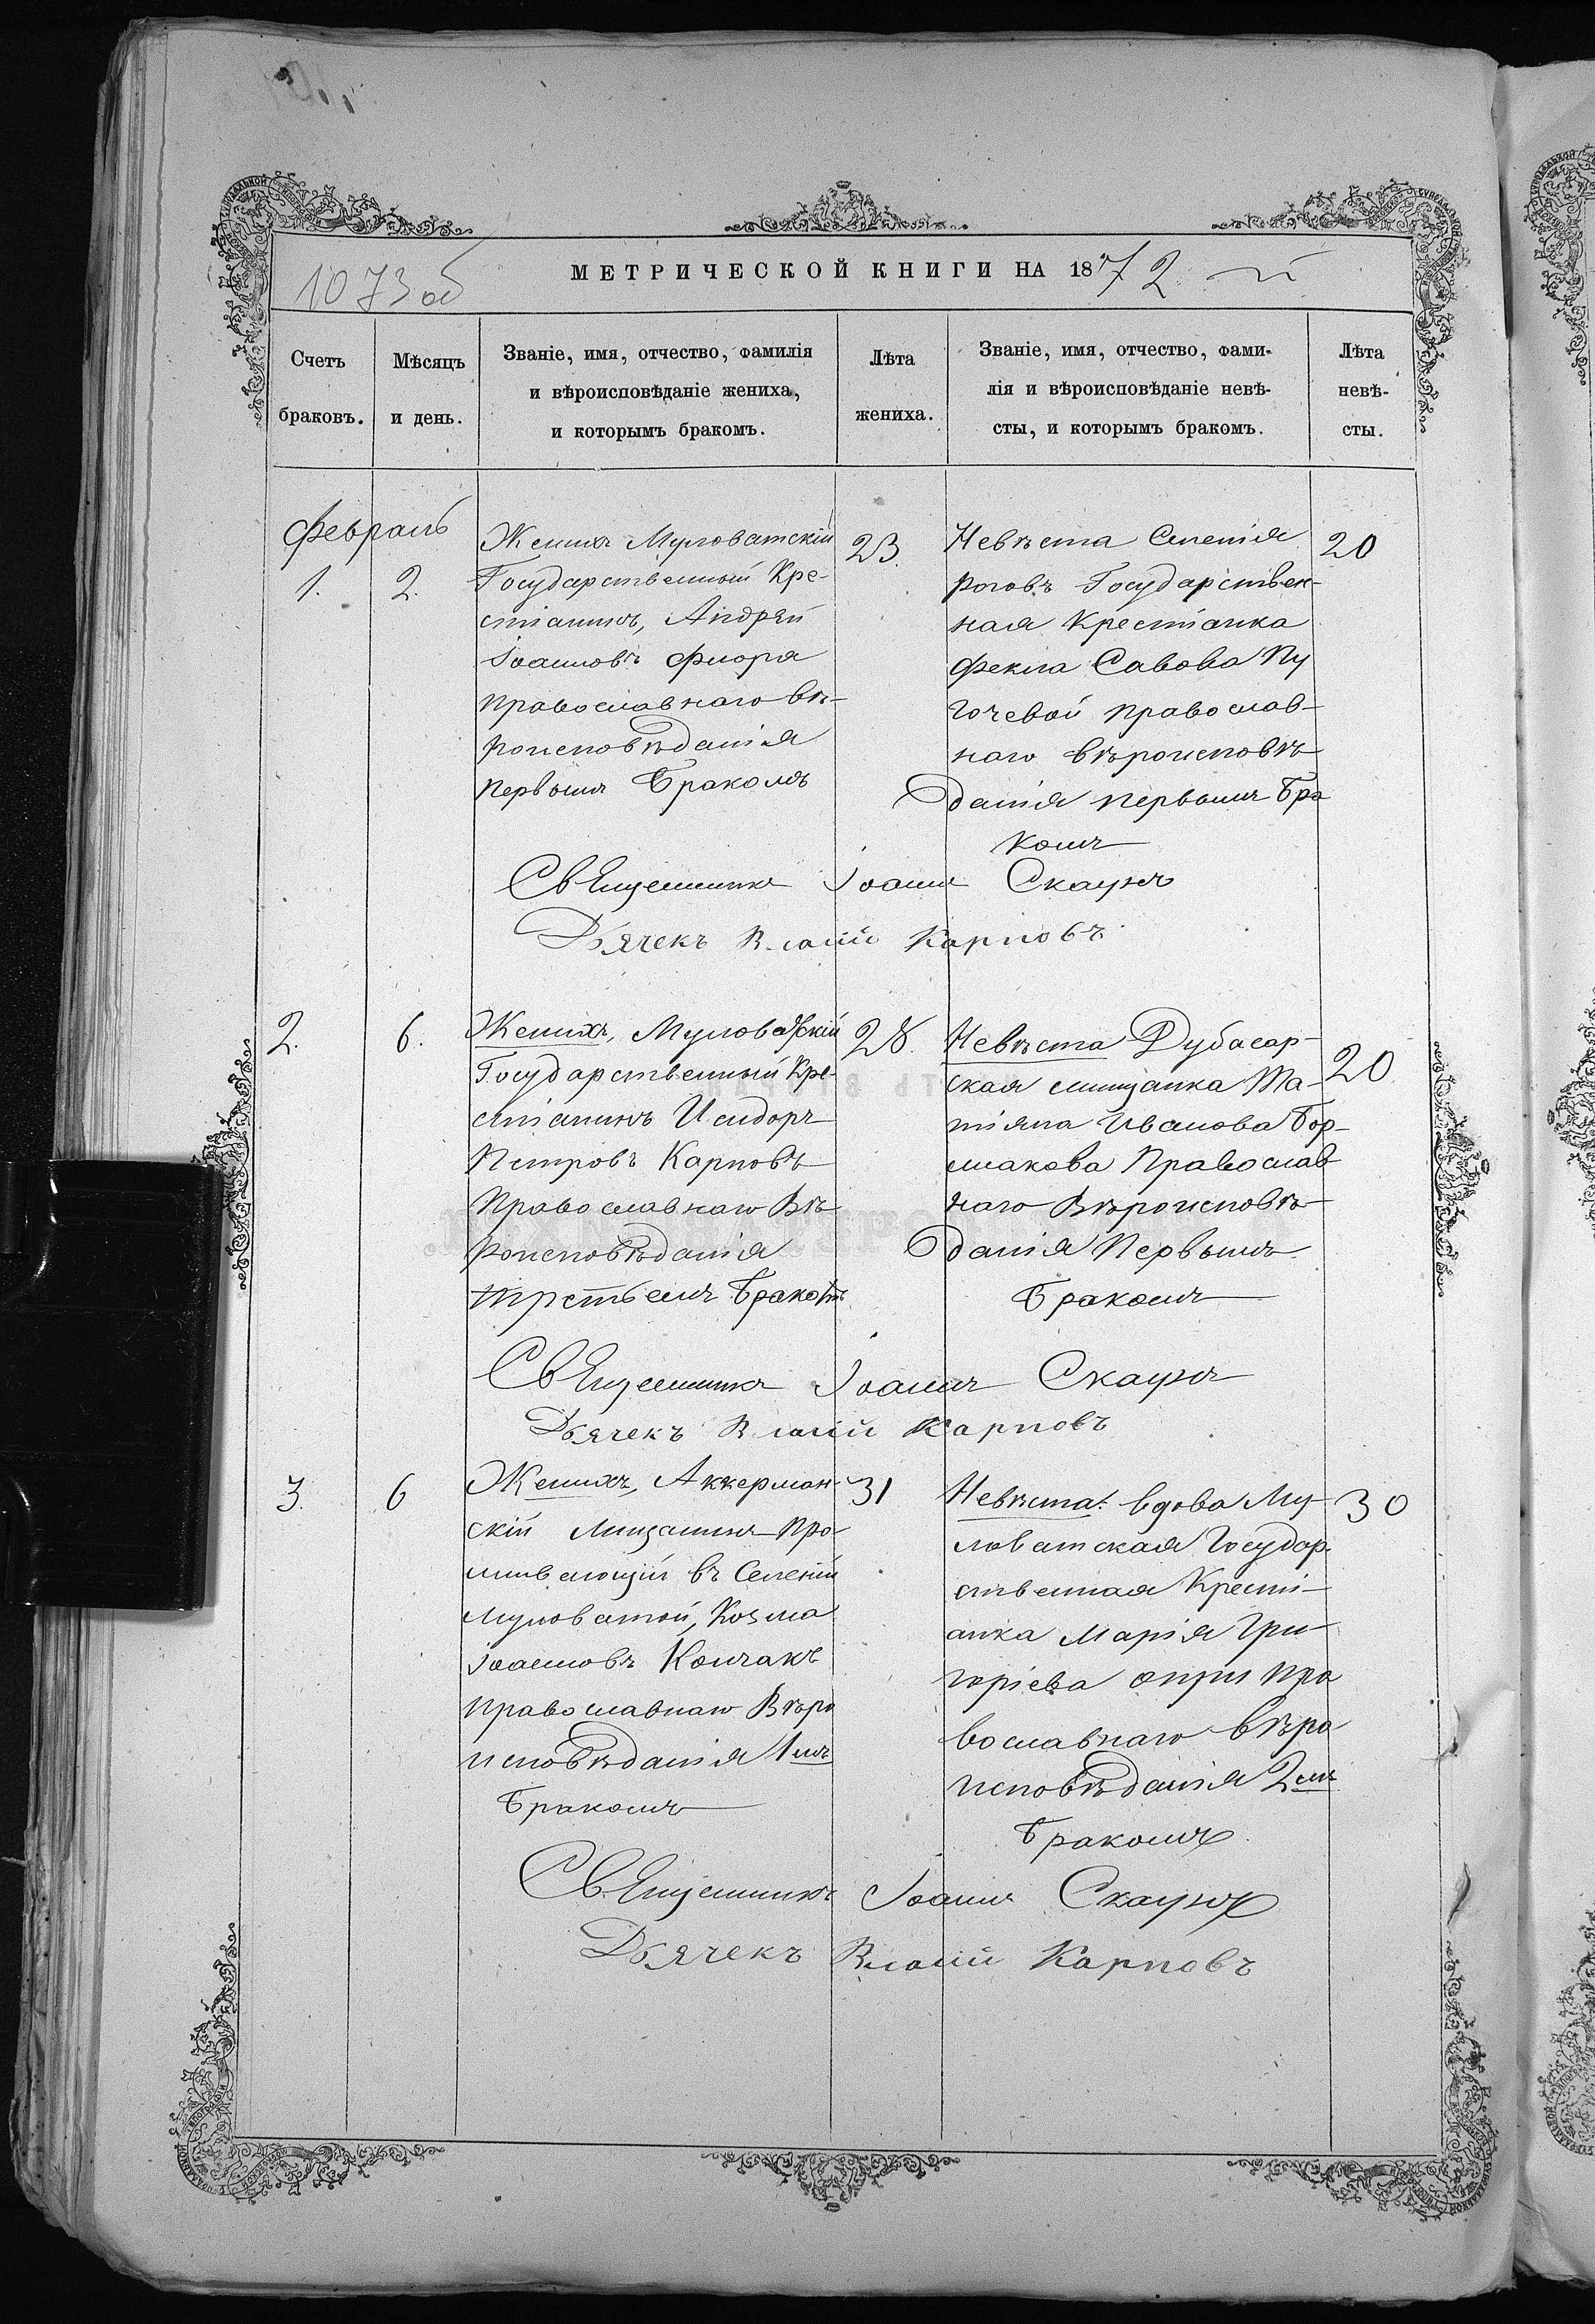 1073 об
МЕТРИЧЕСКОЙ КНИГИ НА 1872 й
Счетъ браковъ.
Мѣсяцъ и день.
Званіе, имя, отчество, фамилія
и вѣроисповѣданіе жениха,
и которымъ бракомъ.
Лѣта жениха.
Званіе, имя, отчество, фами-
лія и вѣроисповѣданіе невѣ-
сты, и которымъ бракомъ.
Лѣта невѣ-
сты.
Февраль
1.
2.
Женихъ Муловатскій
Государственный Кре-
стіанинъ, Андрей
Іоанновъ Флоря
православнаго вѣ-
роисповѣданія
первымъ Бракомъ
23.
Невѣста Селенія
Роговъ Государствен-
ная Крестіанка
Фекла Савова Пу
гочевой православ-
наго вѣроисповѣ-
данія первымъ Бра
комъ
20
Священникъ Іоаннъ Скаунъ
Дьячекъ Власій Карповъ
2.
6.
Женихъ, Муловатскій
Государственный Кре-
стіанинъ Исидоръ
Петровъ Карповъ
Православнаго Вѣ-
роисповѣданія
третьемъ Бракомъ
28.
Невѣста Дубасар-
ская мищанка Та-
тіяна Иванова Бор-
макова Православ
наго Вѣроисповѣ-
данія Первымъ
Бракомъ
20
Священникъ Іоаннъ Скаунъ
Дьячекъ Власій Карповъ
3.
6
Женихъ, Аккерман-
скій Мищанинъ Про-
живающій въ Селеніи
Муловатой, Козма
Іоанновъ Кончакъ
Православнаго Вѣро
исповѣданія 1мъ
Бракомъ
31
Невѣста: вдова Му-
ловатская Государ-
ственная Крести-
анка Марія Гри-
горіева Опри Пра
вославнаго вѣро
исповѣданія 2мъ
Бракомъ
30
Священникъ Іоаннъ Скаунъ
Дьячекъ Власій Карповъ